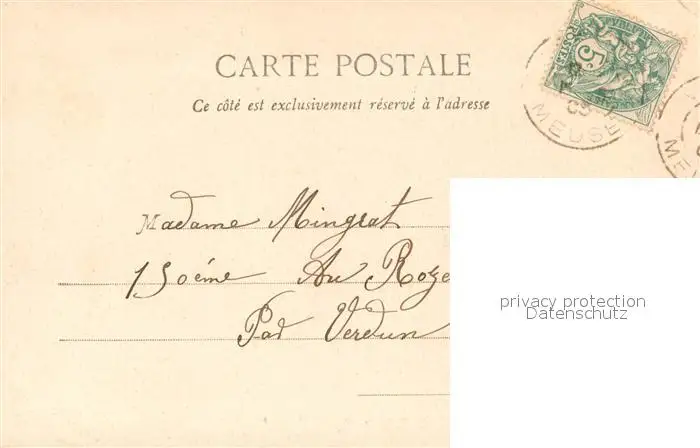 CARTE POSTALE
Ce côté est exclusivement réservé à l'adresse
5c
POSTES
MEUSE
Madame Mingeat
150éme Au Roze
Par Verdun
privacy protection
Datenschutz